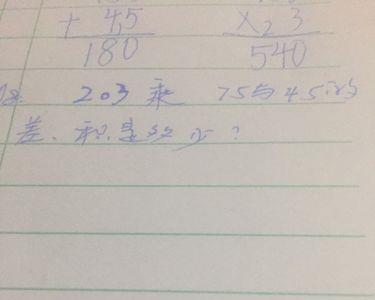 + 45 × 23
180 540
203乘 75与45的
差.积是多少?